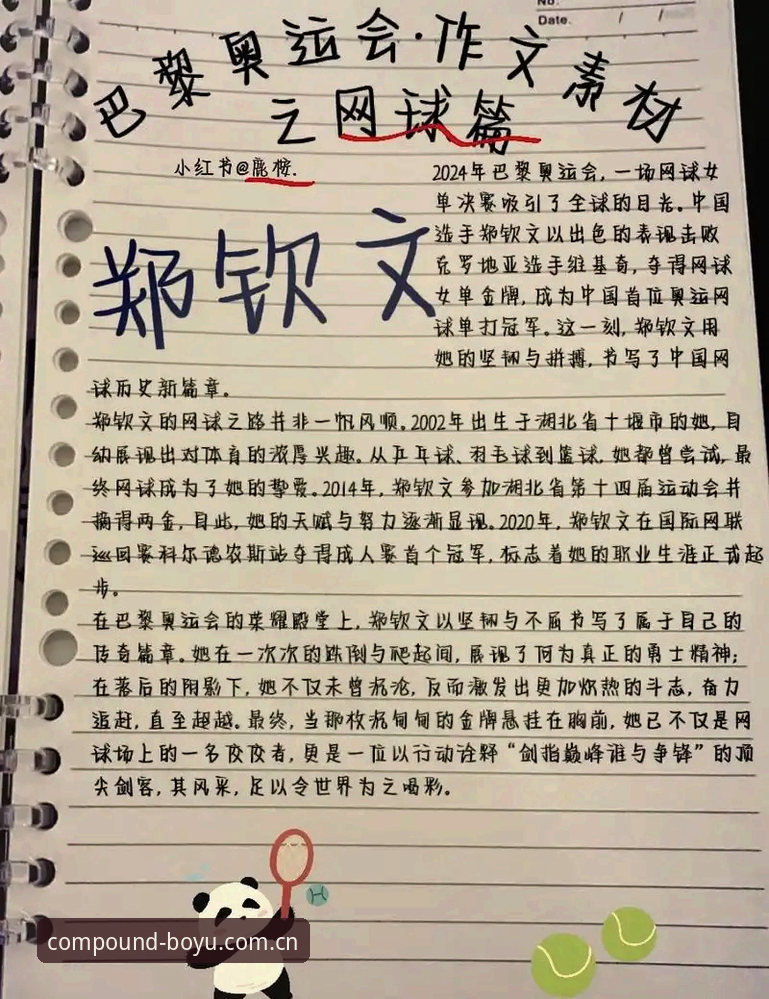 No.
Date. / /
巴黎奥运会·作文素材
之网球篇
小红书@鹿桉.
郑钦文
2024年巴黎奥运会,一场网球女
单决赛吸引了全球的目光。中国
选手郑钦文以出色的表现击败
克罗地亚选手维基奇,夺得网球
女单金牌,成为中国首位奥运网
球单打冠军。这一刻,郑钦文用
她的坚韧与拼搏,书写了中国网
球历史新篇章。
郑钦文的网球之路并非一帆风顺。2002年出生于湖北省十堰市的她,自
幼展现出对体育的浓厚兴趣。从乒乓球、羽毛球到篮球,她都曾尝试,最
终网球成为了她的挚爱。2014年,郑钦文参加湖北省第十四届运动会并
摘得两金,自此,她的天赋与努力逐渐显现。2020年,郑钦文在国际网联
巡回赛科尔德农斯站夺得成人赛首个冠军,标志着她的职业生涯正式起
步。
在巴黎奥运会的荣耀殿堂上,郑钦文以坚韧与不屈书写了属于自己的
传奇篇章。她在一次次的跌倒与爬起间,展现了何为真正的勇士精神;
在落后的阴影下,她不仅未曾沉沦,反而激发出更加炽热的斗志,奋力
追赶,直至超越。最终,当那枚沉甸甸的金牌悬挂在胸前,她已不仅是网
球场上的一名佼佼者,更是一位以行动诠释“剑指巅峰谁与争锋”的顶
尖剑客,其风采,足以令世界为之喝彩。
compound-boyu.com.cn